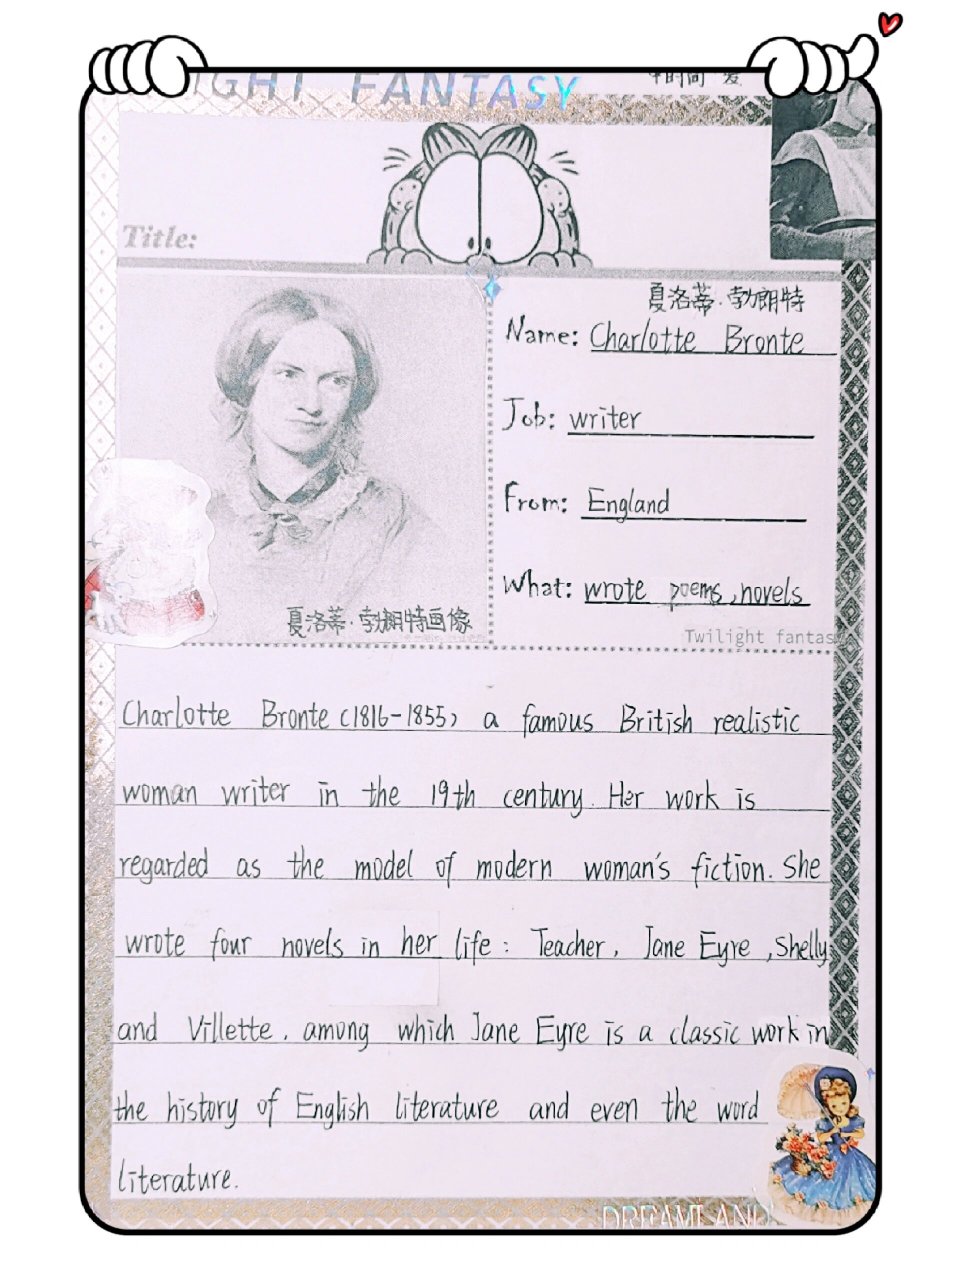 IGHT FANTASY
中时间 爱
Title:
夏洛蒂·勃朗特
Name: Charlotte Bronte
Job: writer
From: England
What: wrote poems, novels
夏洛蒂·勃朗特画像
Twilight fantasy
Charlotte Bronte (1816-1855) a famous British realistic
woman writer in the 19th century. Her work is
regarded as the model of modern woman's fiction. She
wrote four novels in her life: Teacher, Jane Eyre, Shelly
and Villette, among which Jane Eyre is a classic work in
the history of English literature and even the word
literature.
DREAMLAND